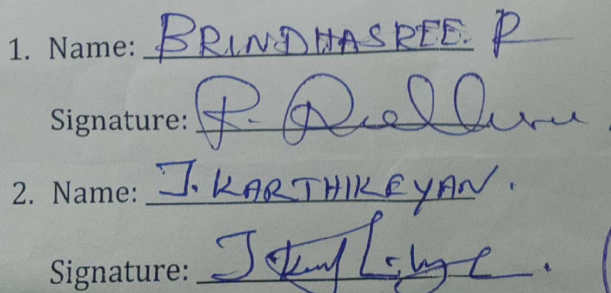 1. Name: BRINDHASREE. R
Signature: R.
2. Name: J. KARTHIKEYAN.
Signature: J